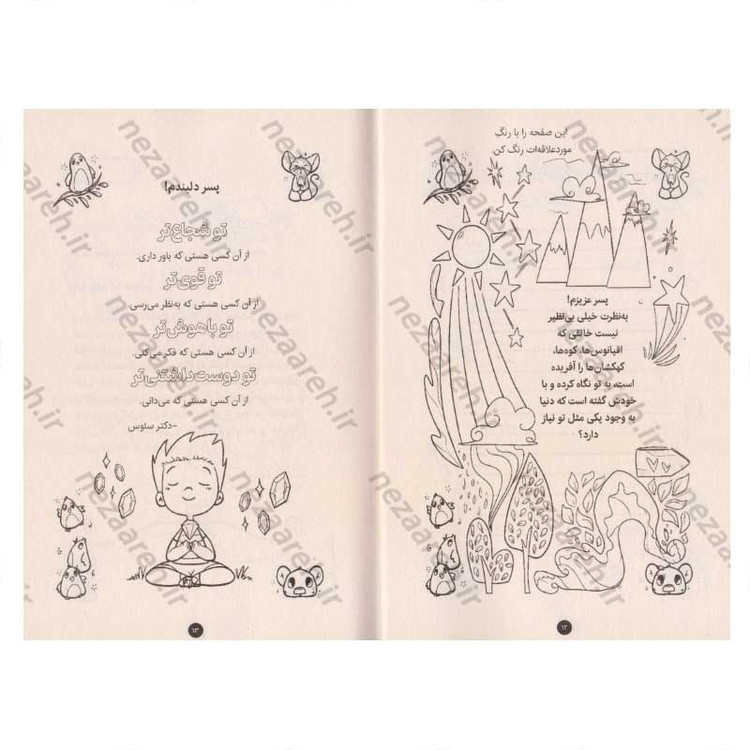 این صفحه را با رنگِ
موردعلاقه‌ات رنگ کن.
پسر عزیزم!
به‌نظرت خیلی بی‌نظیر
نیست خالقی که
اقیانوس‌ها، کوه‌ها،
کهکشان‌ها را آفریده
است، به تو نگاه کرده و با
خودش گفته است که دنیا
به وجود یکی مثل تو نیاز
دارد؟
۱۲
پسر دلبندم!
تو شجاع‌تر
از آن کسی هستی که باور داری.
تو قوی‌تر
از آن کسی هستی که به‌نظر می‌رسی.
تو باهوش‌تر
از آن کسی هستی که فکر می‌کنی.
تو دوست‌داشتنی‌تر
از آن کسی هستی که می‌دانی.
-دکتر سئوس
۱۳
nezaareh.ir
nezaareh.ir
nezaareh.ir
nezaareh.ir
nezaareh.ir
nezaareh.ir
nezaareh.ir
nezaareh.ir
nezaareh.ir